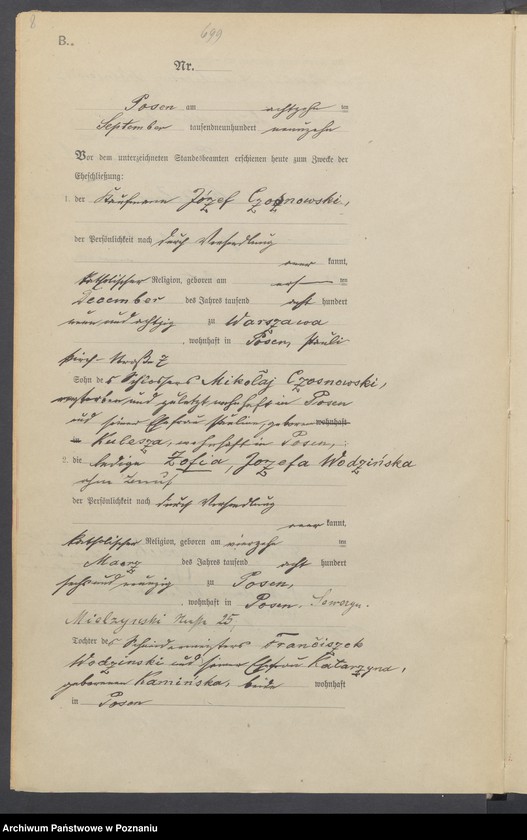 8
699
B..
Nr.
Posen am achtzehn ten
September tausendneunhundert neunzehn
Vor dem unterzeichneten Standesbeamten erschienen heute zum Zwecke der
Eheschließung:
1. der Kaufmann Józef Czosnowski,
der Persönlichkeit nach durch Verhandlung
aner kannt,
katholischer Religion, geboren am ersten
December des Jahres tausend acht hundert
neun und achtzig zu Warszawa
, wohnhaft in Posen, Pauli
kirch-Straße 7
Sohn des Schlossers Mikołaj Czosnowski,
verstorben und zuletzt wohnhaft in Posen
und seiner Ehefrau Pauline, geborenen wohnhaft
in Kulesza, wohnhaft in Posen,
2. die ledige Zofia, Jozefa Wodzińska
ohne Beruf
der Persönlichkeit nach durch Verhandlung
aner kannt,
katholischer Religion, geboren am vierzehn ten
Maerz des Jahres tausend acht hundert
sechs und neunzig zu Posen,
, wohnhaft in Posen,
Mielzynski Straße 25,
Tochter des Schneidermeisters Franciszek
Wodzinski und seiner Ehefrau Katarzyna,
geborenen Kamińska, beide wohnhaft
in Posen
Archiwum Państwowe w Poznaniu